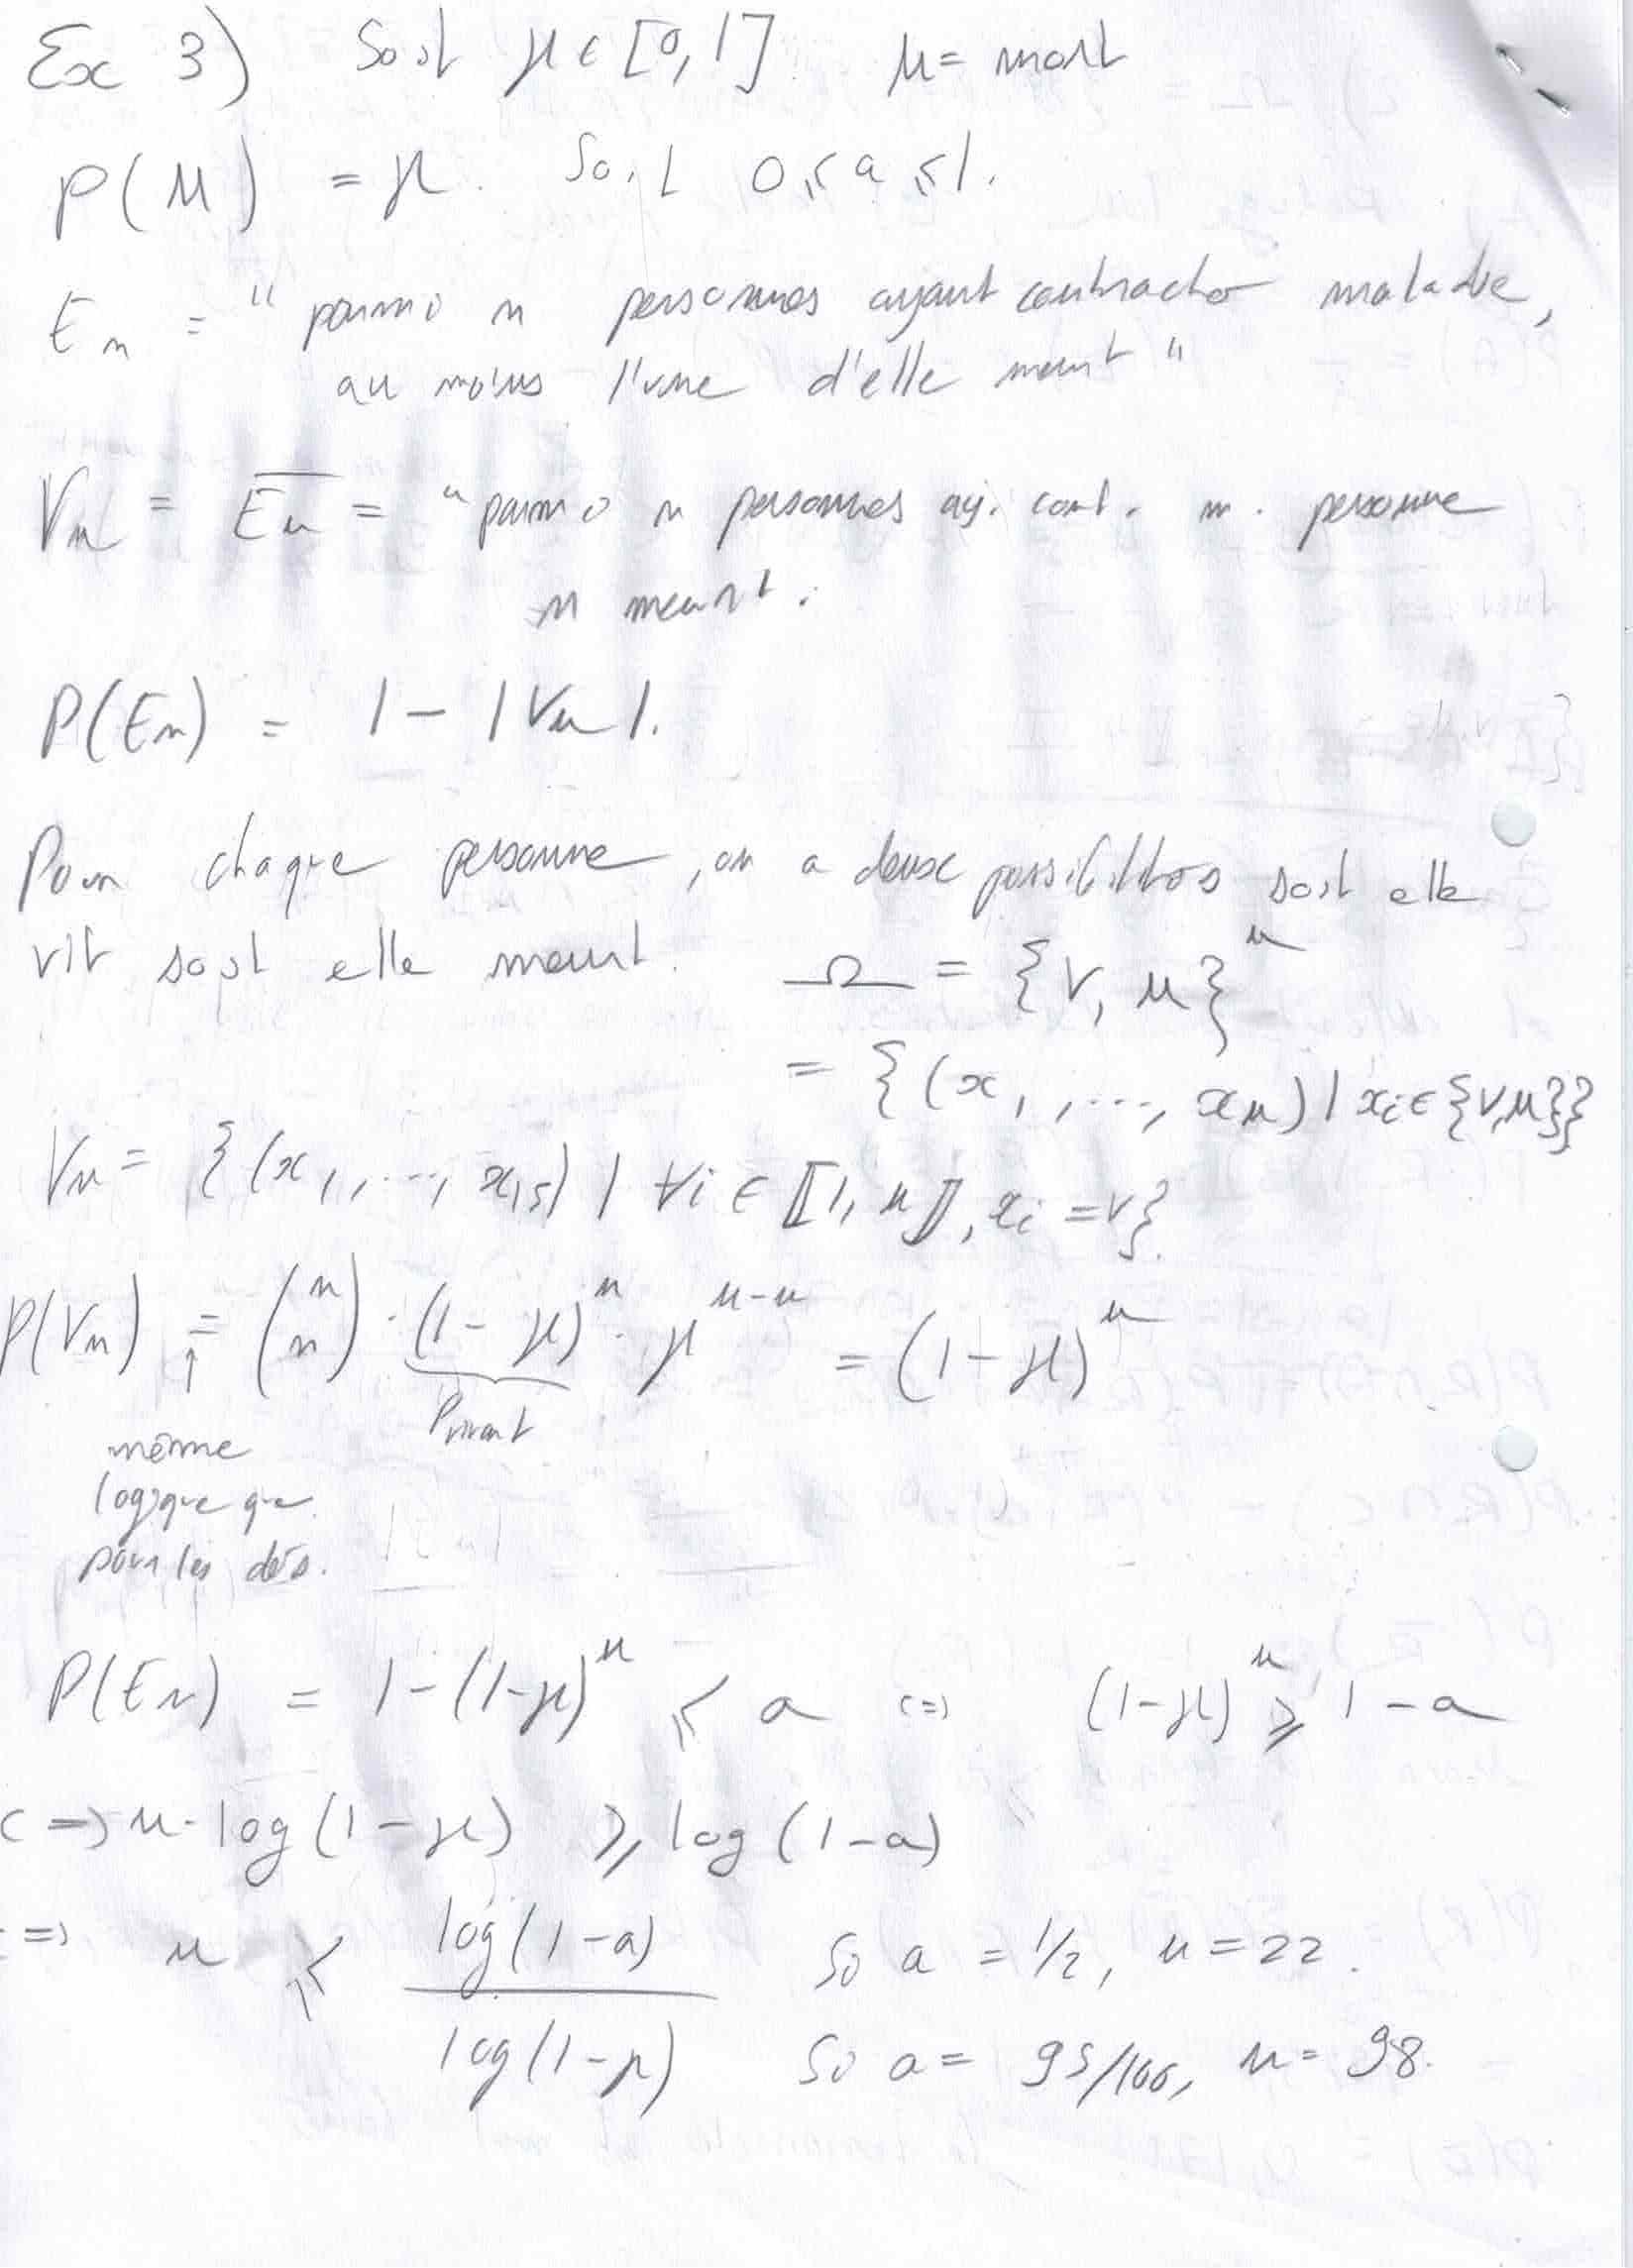 Ex 3) Soit μ ∈ [0,1]. M = mort
P(M) = μ. Soit 0 ≤ a ≤ 1.
En = "parmi n personnes ayant contracter maladie,
au moins l'une d'elle meurt"
Vn = \overline{En} = "parmi n personnes ay. cont. m. personne
n meurt.
P(En) = 1 - |Vn|.
Pour chaque personne, on a deux possibilités soit elle
vit soit elle meurt. Ω = {V, M}^n
= {(x1, ..., xn) | xi ∈ {V,M}}
Vn = {(x1, ..., x15) | ∀i ∈ ⟦1, n⟧, xi = V}.
P(Vn) = (n n) · (1-μ)^n · μ^{n-n} = (1-μ)^n
↑ Pvivant
même
logique que
pour les dés.
P(En) = 1-(1-μ)^n ≤ a <=> (1-μ)^n ≥ 1-a
<=> n·log(1-μ) ≥ log(1-a)
<=> n ≤ log(1-a) / log(1-μ) Si a = 1/2, n=22.
Si a = 95/100, n = 98.